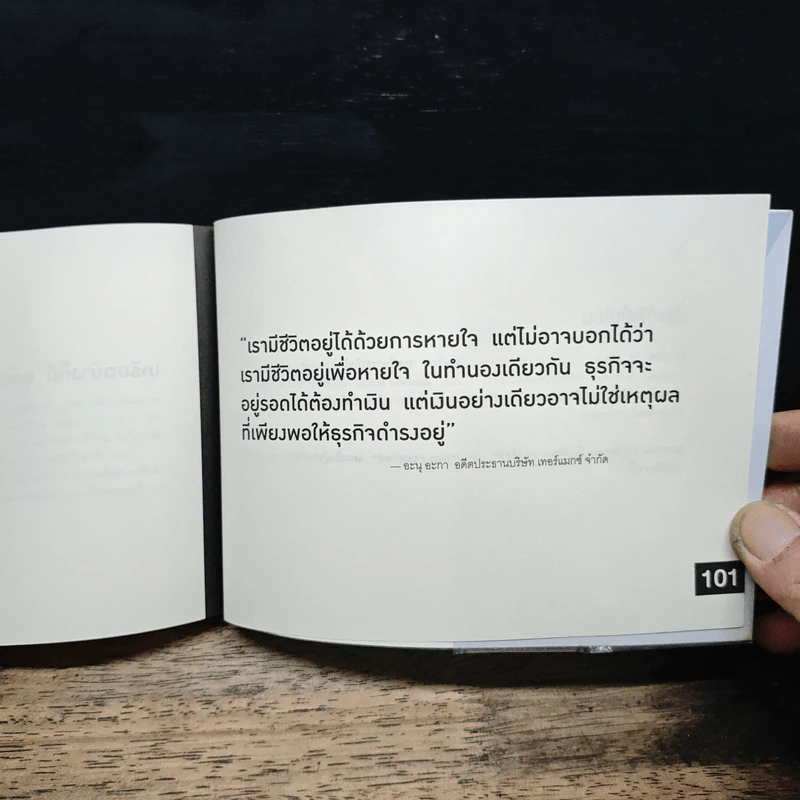 “เรามีชีวิตอยู่ได้ด้วยการหายใจ แต่ไม่อาจบอกได้ว่า
เรามีชีวิตอยู่เพื่อหายใจ ในทำนองเดียวกัน ธุรกิจจะ
อยู่รอดได้ต้องทำเงิน แต่เงินอย่างเดียวอาจไม่ใช่เหตุผล
ที่เพียงพอให้ธุรกิจดำรงอยู่”
— อะนุ อะกา อดีตประธานบริษัท เทอร์แมกซ์ จำกัด
101